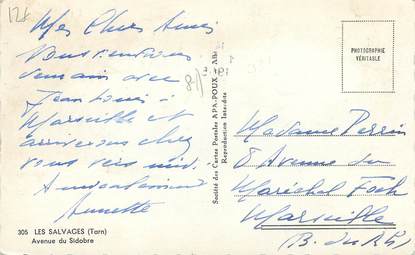 12f
Mes Chers Amis
Nous rentrons
demain avec
Jean Louis à
Marseille et
arriverons chez
vous vers midi.
Amicalement
Annette
305 LES SALVAGES (Tarn)
Avenue du Sidobre
Société des Cartes Postales APA-POUX - Albi
Reproduction Interdite
PHOTOGRAPHIE
VÉRITABLE
Madame Perrin
8 Avenue du
Maréchal Foch
Marseille
(B. du Rh)